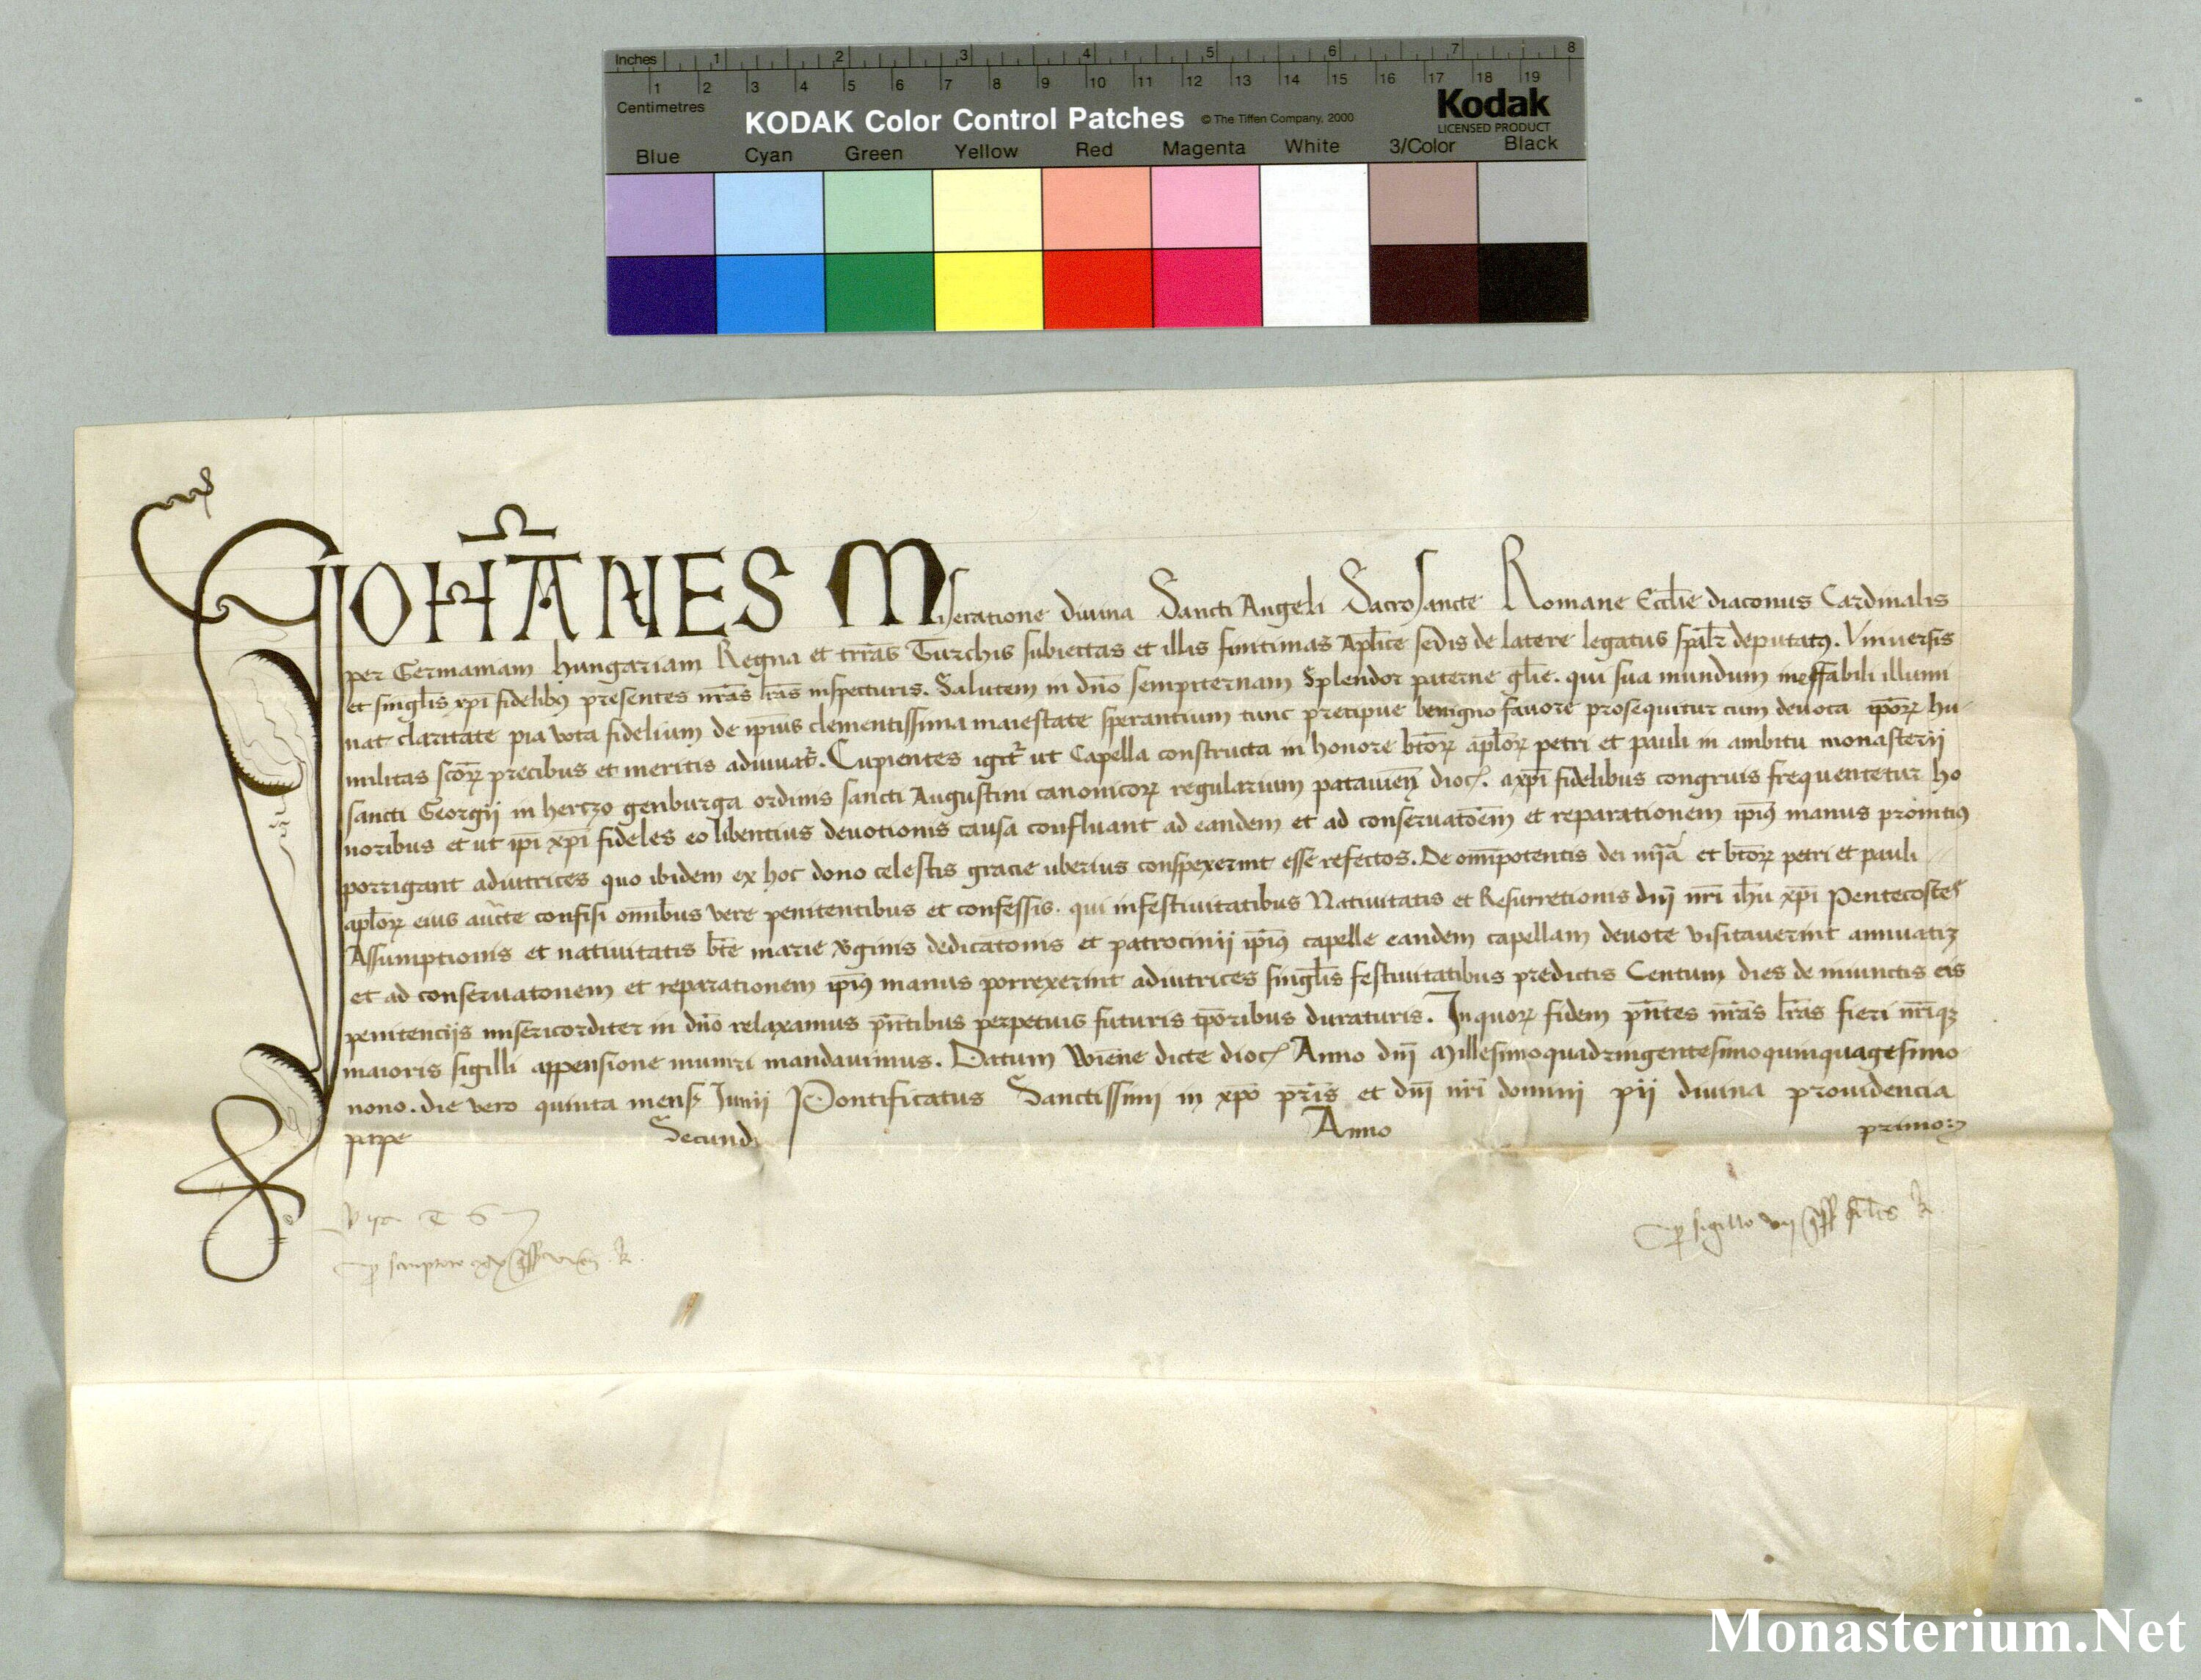 Inches 1 2 3 4 5 6 7 8
1 2 3 4 5 6 7 8 9 10 11 12 13 14 15 16 17 18 19
Centimetres
KODAK Color Control Patches © The Tiffen Company, 2000 Kodak
LICENSED PRODUCT
Blue Cyan Green Yellow Red Magenta White 3/Color Black
IOHĀNES Miseratione divina Sancti Angeli Sacrosancte Romane Eccl̄ie diaconus Cardinalis
per Germaniam hungariam Regna et trr̄as Turchis subiectas et illis finitimas Apl̄ice sedis de latere legatus spāl'r deputatꝰ. Vniuersis
et singl̄is xp̄i fidelibꝰ presentes nr̄as lr̄as inspecturis. Salutem in dn̄o sempiternam Splendor paterne gl̄ie. qui sua mundum ineffabili illumi
nat claritate pia vota fidelium de ip̄ius clementissima maiestate sperantium tunc precipue benigno fauore prosequitur cum deuota ip̄oꝝ hu-
militas sc̄oꝝ precibus et meritis adiuuat̄. Cupientes igit̄ ut Capella constructa in honore bt̄oꝝ apl̄oꝝ petri et pauli in ambitu monasterij
sancti Georgij in hertzogenburga ordinis sancti Augustini canonicoꝝ regularium patauien̄ dioc̄. a xp̄i fidelibus congruis frequentetur ho
noribus et ut ip̄i xp̄i fideles eo libentius deuotionis causa confluant ad eandem et ad conseruatōem et reparationem ip̄iꝰ manus promtiꝰ
porrigant adiutrices quo ibidem ex hoc dono celestis gracie uberius conspexerint esse refectos. De om̄ipotentis dei mīa et bt̄oꝝ petri et pauli
apl̄oꝝ eius auc̄te confisi om̄ibus vere penitentibus et confessis. qui in festiuitatibus Natiuitatis et Resurretionis dn̄j nr̄i ih̄u xp̄i Pentecostes
Assumptionis et natiuitatis bt̄e marie v̄ginis dedicatōnis et patrocinij ip̄iꝰ capelle eandem capellam deuote visitauerint annuatiꝫ
et ad conseruatōnem et reparationem ip̄iꝰ manus porrexerint adiutrices singl̄is festiuitatibus predictis Centum dies de iniunctis eis
penitencijs misericorditer in dn̄o relaxamus pn̄tibus perpetuis futuris tp̄oribus duraturis. In quoꝝ fidem pn̄tes nr̄as lr̄as fieri nr̄iqꝫ
maioris sigilli appensione muniri mandauimus. Datum Wienne dicte dioc̄ Anno dn̄j Millesimoquadringentesimoquinquagesimo
nono. die vero quinta mens̄ Iunij Pontificatus Sanctissimi in xp̄o pr̄is et dn̄j nr̄i domini pij diuina prouidencia
pape Secundi Anno primo
Monasterium.Net